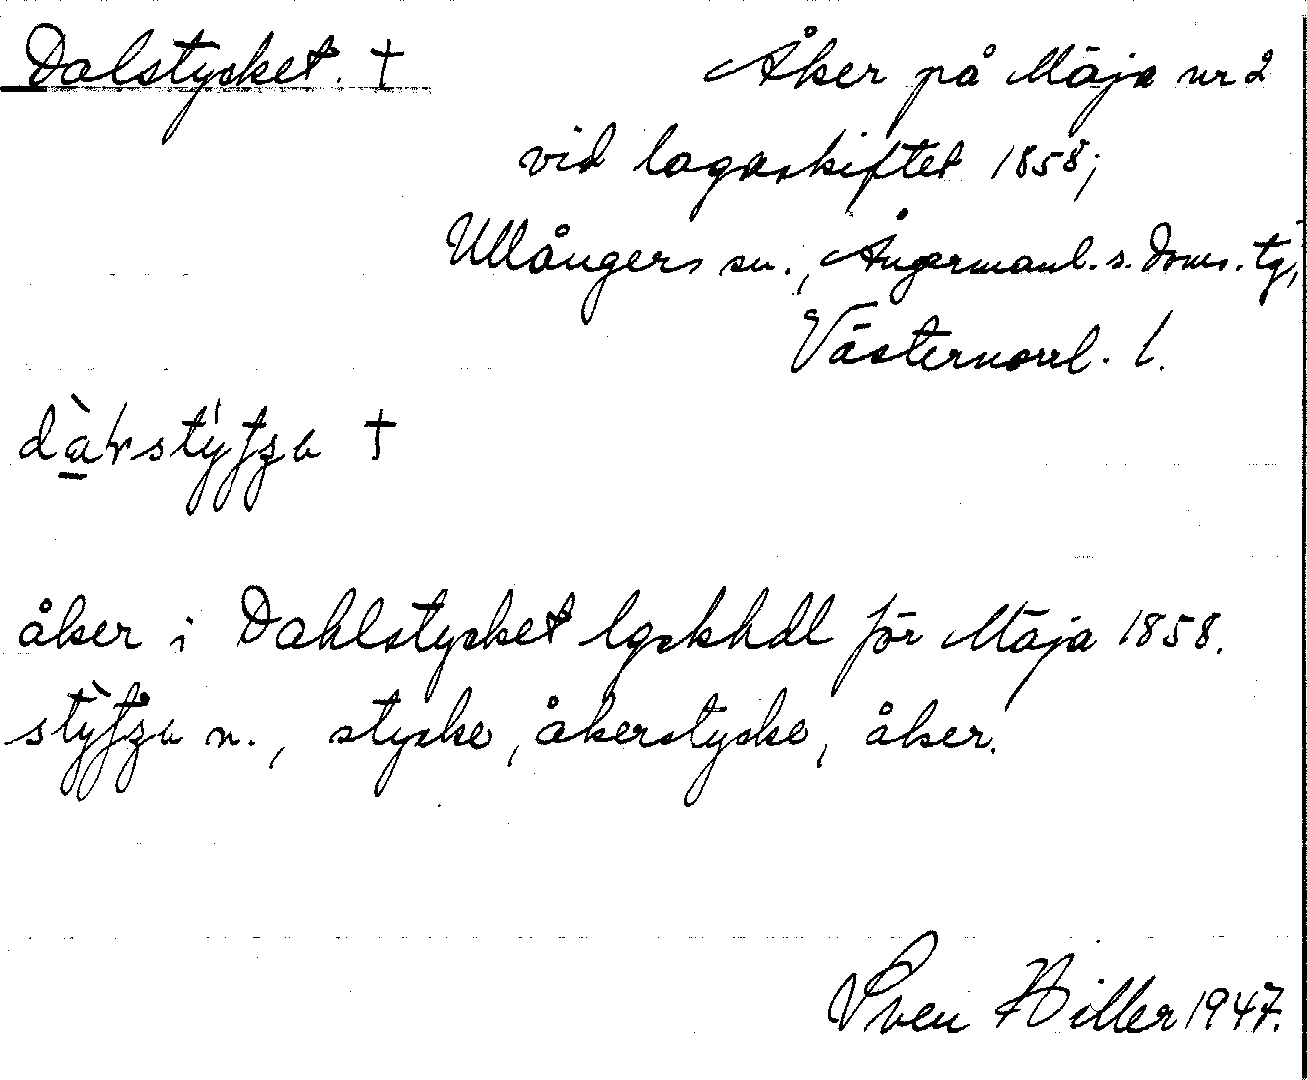 Dalstycket. † Åker på Mäja nr 2
vid lagaskiftet 1858;
Ullångers sn., Ångermanl. s. doms. tg,
Västernorrl. l.
†
åker i Dahlstycket lgskhdl för Mäja 1858.
n., stycke, åkerstycke, åker.
Sven Hiller 1947.